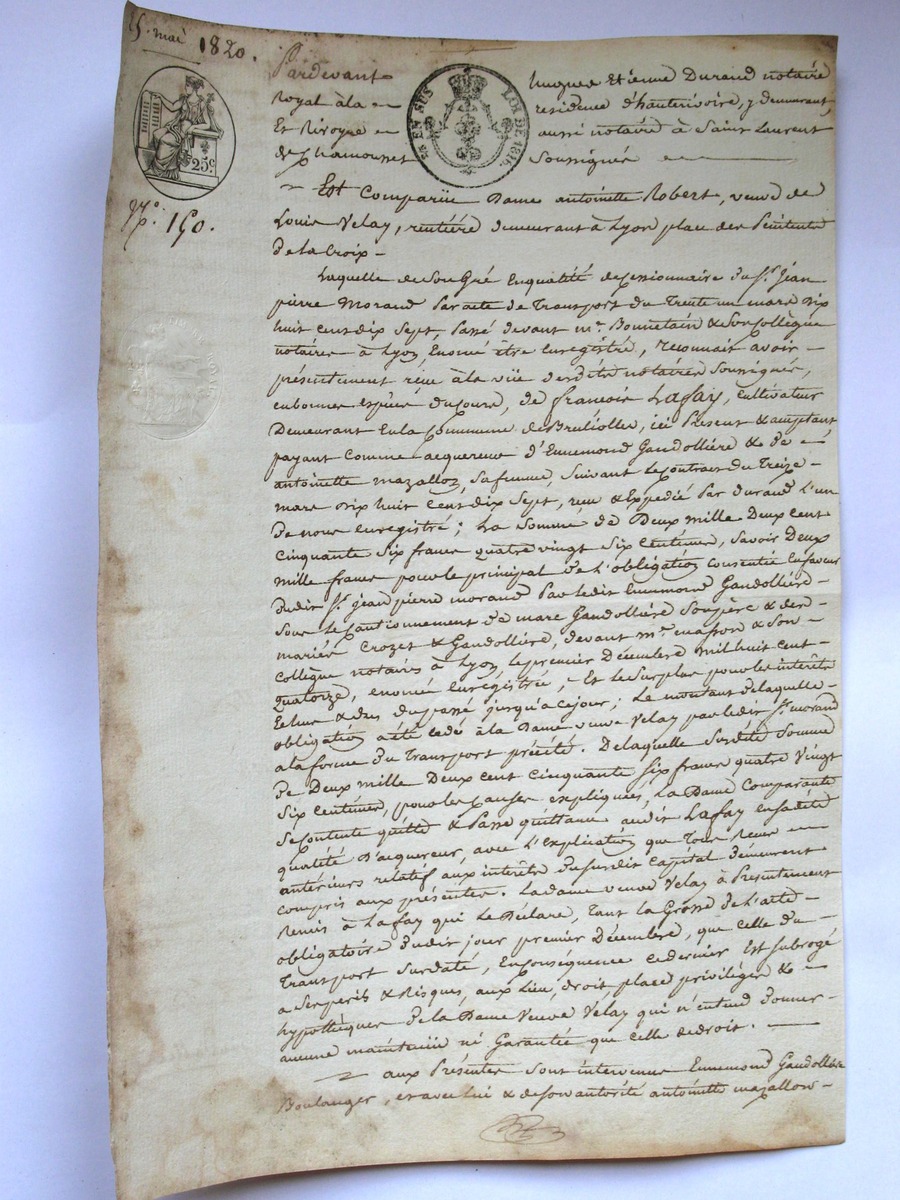 5. mai 1820.
25c.
EN SUS
LOI DE 1816.
No. 150.
Pardevant hugues Etienne Durand notaire
Royal à la residence d'hauterivoire, y demeurant,
Et Rivoyre aussi notaire à Saint Laurent
de Chamousset Soussignés
Est Comparüe Dame antoinette Robert, veuve de
Louis Velay, rentière demeurant à Lyon place des Pénitents
de la Croix
Laquelle de Son Gré En qualité de Cessionnaire du Sr. jean
pierre Morand Par acte de Transport du Trente un mars dix
huit Cent dix Sept, Passé devant me. Bonnetain & Son Collègue
notaires à Lyon, Enoncé être Enregistré, reconnait avoir
présentement reçu à la vüe desdits notaires Soussignés,
en bonnes espèces du Cours, de francois Lafay, Cultivateur
Demeurant En la Commune de Brulliolles, ici Présent & acceptant
payant Comme acquereur d'Ennemond Gandollière & de
antoinette mazallon, Sa femme, Suivant Le Contrat du Treize
mars dix huit Cent dix Sept, reçu & Expedié Par durand L'un
de nous Enregistré; La Somme de Deux mille Deux Cent
Cinquante Six francs quatre vingt Six Centimes, Savoir Deux
mille francs pour le principal de L'obligation Consentie En faveur
dudit Sr. jean pierre morand Par ledit Ennemond Gandollière
Sous le Cautionnement de marc Gandollière Son père & des
mariés Crozet & Gandollière, devant me. Casson & Son
Collègue notaires à Lyon le premier Décembre mil huit Cent
quatorze, enoncée Enregistrée, Et le Surplus pour les intérêts
Echus & dus du passé jusqu'à ce jour; Le montant de laquelle
obligation a été Cédé à la Dame veuve Velay par ledit Sr. morand
a la forme du Transport précité. De laquelle Susdite Somme
de Deux mille Deux Cent Cinquante Six francs quatre Vingt
Six Centimes, pour les Causes expliquées, La Dame Comparante
Se Contente quitte & Passe quittance audit Lafay En sadite
qualité D'acquereur, avec L'Explication que Tous reçus
antérieurs relatifs aux intérêts du Susdit Capital demeurent
Compris aux présentes. La dame veuve Velay à Présentement
Remis à Lafay qui Le Déclare, Tant la Grosse de L'acte
obligatoire dudit jour premier Décembre, que Celle du
Transport Surdaté, En Conséquence Ce dernier Est Subrogé
a Ses perils & Risques, aux Lieu, droit, place privilèges &
hypothèques de la Dame Veuve Velay qui n'entend donner
aucune maintenüe ni Garantie que Celle de droit.
aux Présentes Sont intervenus Ennemond Gandollière
Boulanger, et avec Lui & de Son autorité antoinette mazallon